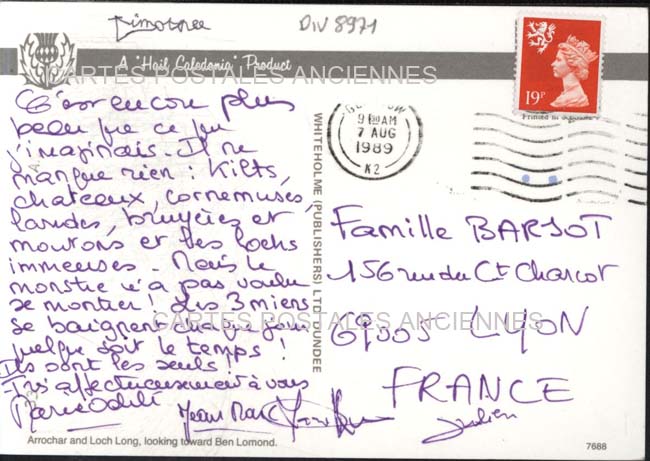 Timothée
DIV 8971
A 'Hail Caledonia' Product
CARTES POSTALES ANCIENNES
C'est encore plus
beau que ce que
j'imaginais. Il ne
manque rien : Kilts,
chateaux, cornemuses,
landes, bruyères et
moutons et les lochs
immenses. Mais le
monstre n'a pas voulu
se montrer ! Les 3 miens
se baignent chaque jour
quelque soit le temps !
Ils sont les seuls !
Très affectueusement à vous
Marie Odile
Jean Marc
Julien
Arrochar and Loch Long, looking toward Ben Lomond.
WHITEHOLME (PUBLISHERS) LTD DUNDEE
19P
9 AM
7 AUG
1989
K2
Famille BARJOT
156 rue du Ct Charcot
69005 LYON
FRANCE
CARTES POSTALES ANCIENNES
7688